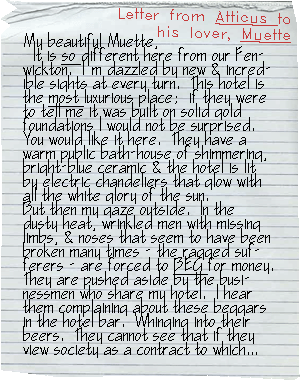 Letter from Atticus to
his lover, Muette
My beautiful Muette,
It is so different here from our Fen-
wickton. I'm dazzled by new & incred-
ible sights at every turn. This hotel is
the most luxurious place; if they were
to tell me it was built on solid gold
foundations I would not be surprised.
You would like it here. They have a
warm public bath-house of shimmering,
bright-blue ceramic & the hotel is lit
by electric chandeliers that glow with
all the white glory of the sun.
But then my gaze outside. In the
dusty heat, wrinkled men with missing
limbs, & noses that seem to have been
broken many times - the ragged suf-
ferers - are forced to BEG for money.
They are pushed aside by the busi-
nessmen who share my hotel. I hear
them complaining about these beggars
in the hotel bar. Whinging into their
beers. They cannot see that if they
view society as a contract to which...